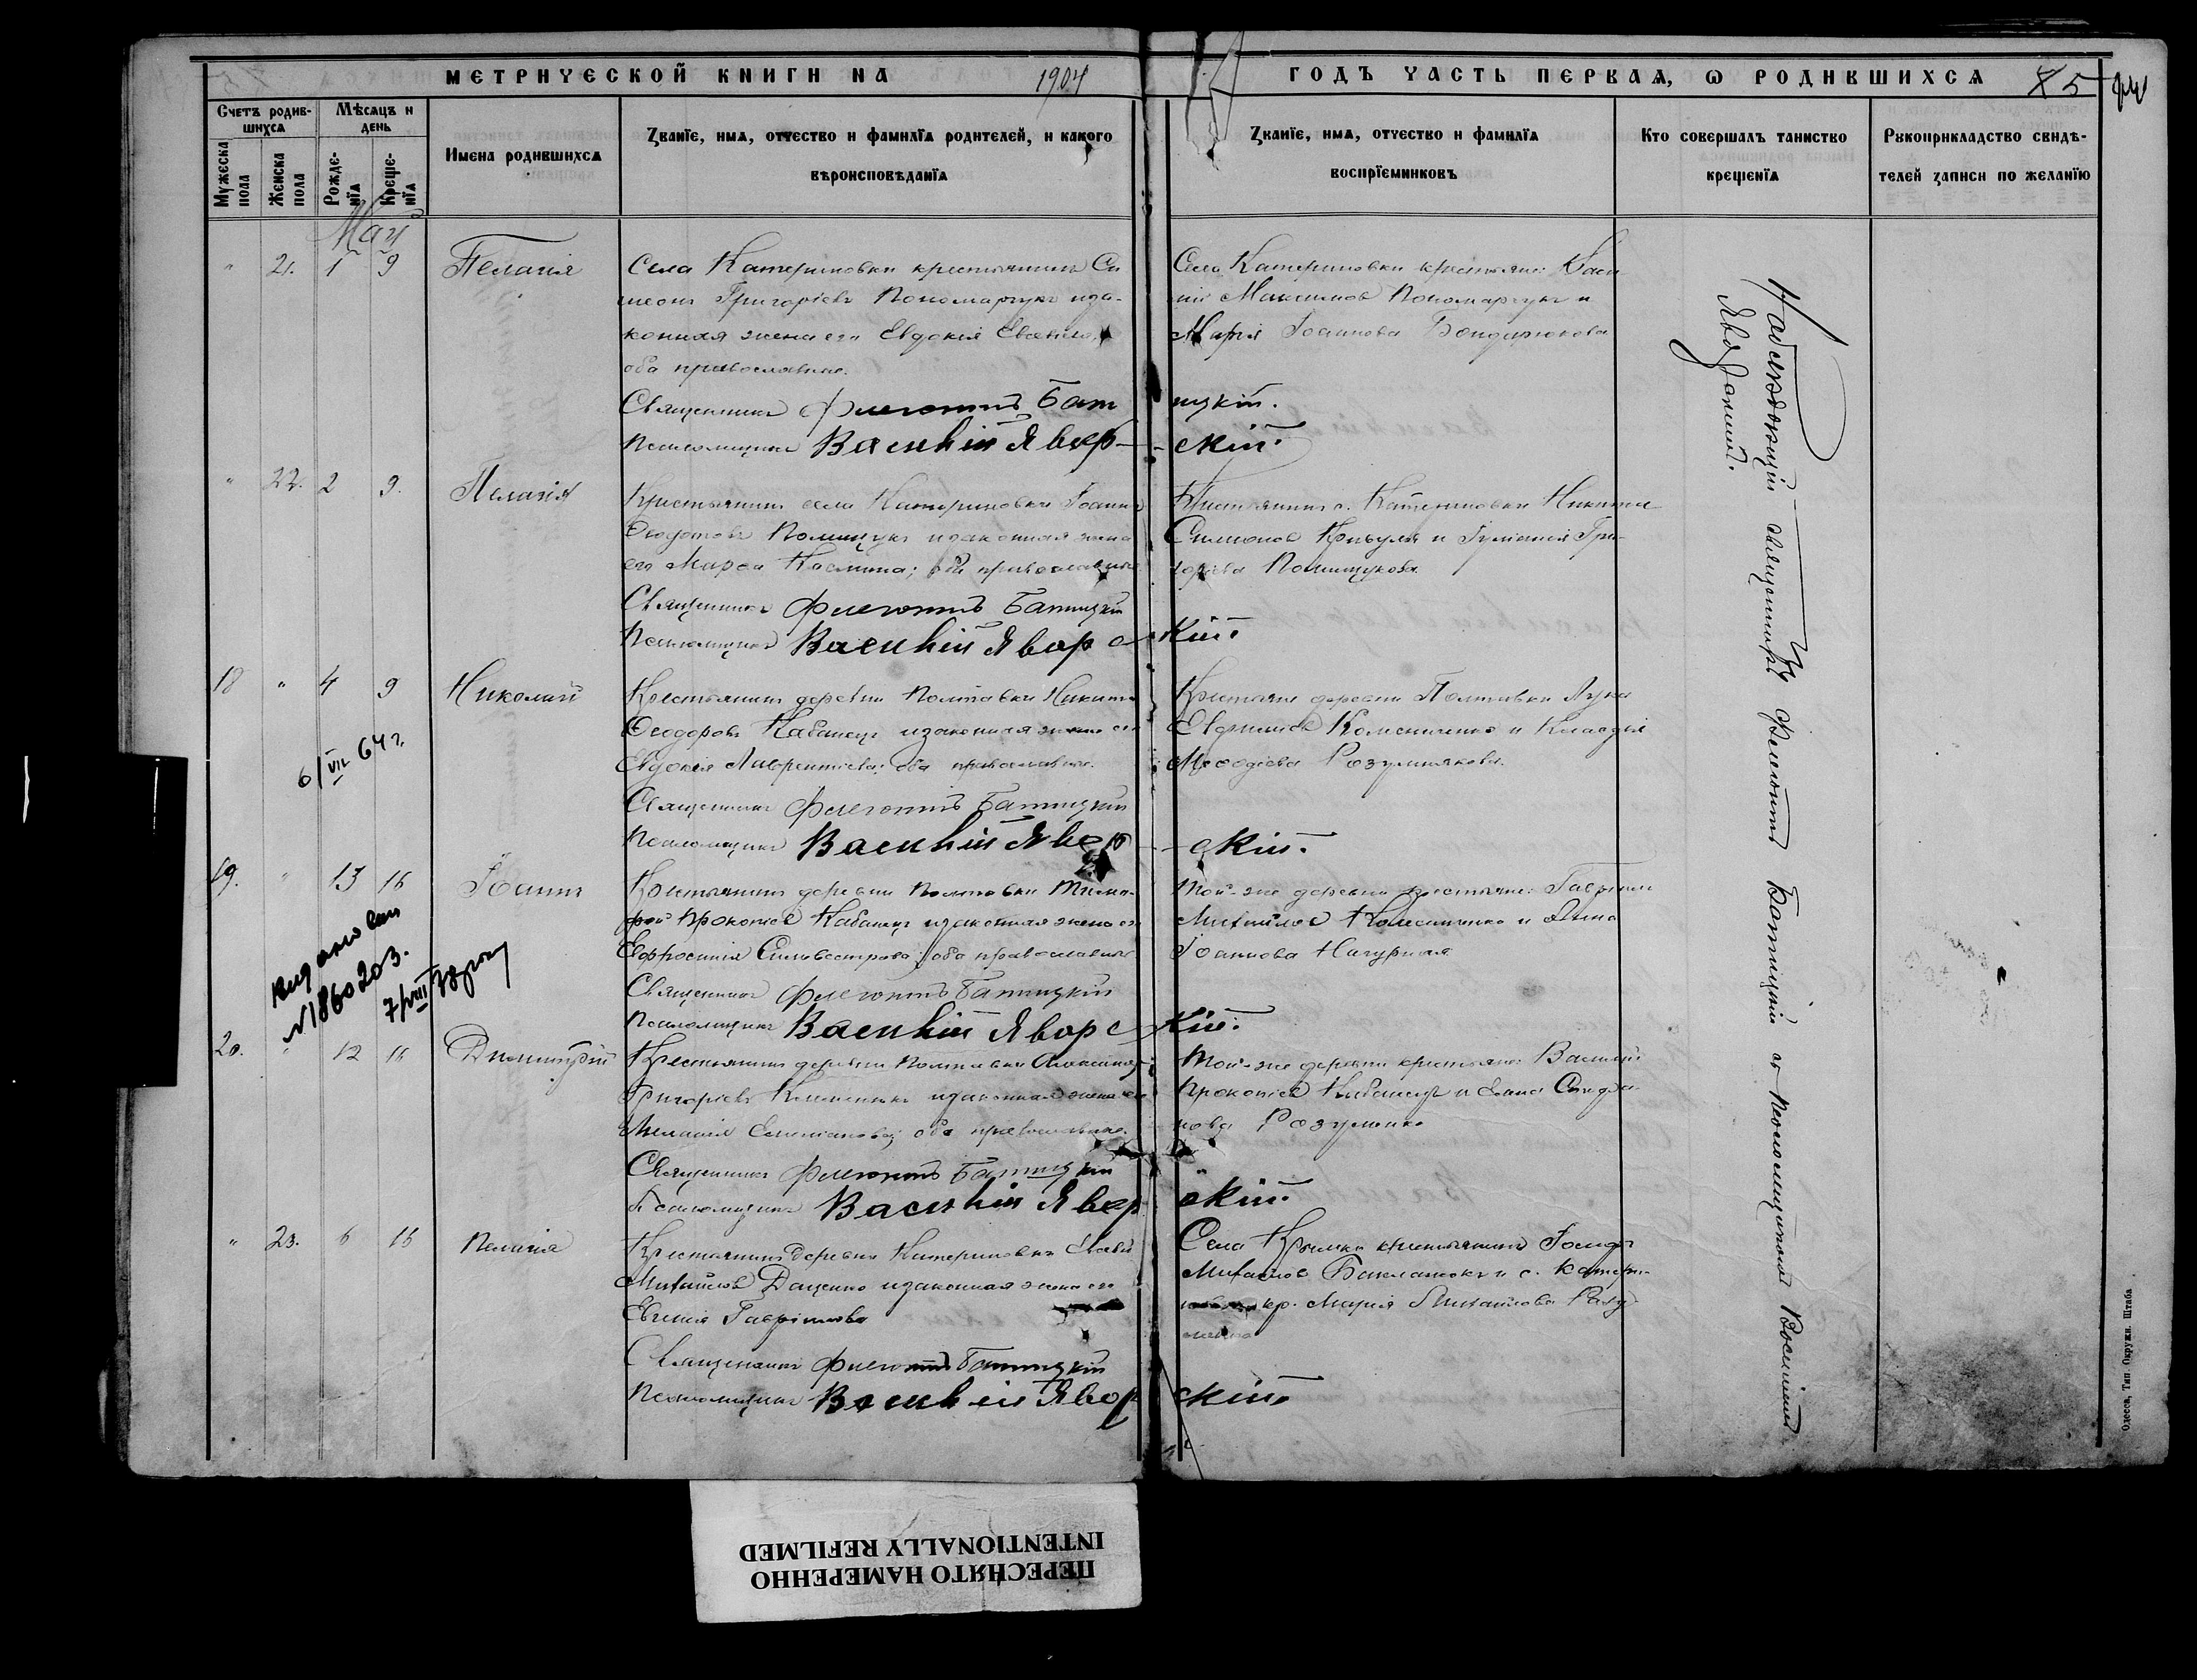 МЕТРИЧЕСКОЙ КНИГИ НА 1904 ГОДЪ ЧАСТЬ ПЕРВАЯ, О РОДИВШИХСЯ 85
Счетъ родив-
шихся
Мужеска
пола
Женска
пола
Мѣсяцъ и
день
Рожде-
нія
Креще-
нія
Имена родившихся
Званіе, имя, отчество и фамилія родителей, и какого
вѣроисповѣданія
Званіе, имя, отчество и фамилія
воспріемниковъ
Кто совершалъ таинство
крещенія
Рукоприкладство свидѣ-
телей записи по желанію
Май
" 21. 1 9 Пелагія
Села Катериновки крестьянинъ Си
меонъ Григоріевъ Пономарчукъ иза-
конная жена его Евдокія
оба православные.
Священникъ Флегонтъ Бат
ицкій.
Псаломщикъ Василій Явор-
-скій.
Села Катериновки крестьяне: Васи
лій Максимовъ Пономарчукъ и
Марія Іоаннова Бондарюкова
" 22. 2 9. Пелагія
Крестьянинъ села Катериновки Іоаннъ
Ѳеодотовъ Полищукъ изаконная жена
его Марѳа; оба православные
Священникъ Флегонтъ Батицкій
Псаломщикъ Василій Яворс
кій.
Крестьянинъ с. Катериновки Никита
Симеоновъ и Гри-
горіева Полищукова
18 " 4 9 Николай
Крестьянинъ деревни Полтавки Никита
Ѳеодоровъ Кабанецъ изаконная жена его
Евдокія Лаврентіева; оба православные.
Священникъ Флегонтъ Батицкій
Псаломщикъ Василій Явор
-скій.
Крестьяне деревни Полтавки Лука
Евфиміевъ Колесниченко и Клавдія
Меѳодіева
6/VII 64 г.
19. " 13 16 Іоаннъ
Крестьянинъ деревни Полтавки Тимо-
фей Прокопіевъ Кабанецъ изаконная жена его
Евфросинія Сильвестрова; оба православные
Священникъ Флегонтъ Батицкій
Псаломщикъ Василій Яворс
кій.
Той-же деревни крестьяне: Гавріилъ
Михайловъ Колесниченко и Анна
Іоаннова
N1860203.
7/VIII
20. " 12 16 Димитрій
Крестьянинъ деревни Полтавки Александръ
Григоріевъ изаконная жена его
оба православные.
Священникъ Флегонтъ Батицкій
Псаломщикъ Василій Явор
скій.
Той-же деревни крестьяне: Василій
Прокопіевъ Кабанецъ и Анна Стефа-
нова Розуменко
" 23. 6 16 Пелагія
Крестьянинъ деревни Катериновки Савва
Михайловъ Даценко изаконная жена его
Евгенія Гавріилова
Священникъ Флегонтъ Батицкій
Псаломщикъ Василій Явор
скій.
Села Крымки крестьянинъ Іосифъ
Михайловъ Баклажокъ и с. Катери-
кр. Марія Михайлова Разу-
менко
Наблюдающій священникъ Флегонтъ Батицкій съ Псаломщикомъ Василіемъ
Яворскимъ.
Одесса, Тип. Окружн. Штаба
ПЕРЕСНЯТО НАМЕРЕННО
INTENTIONALLY REFILMED